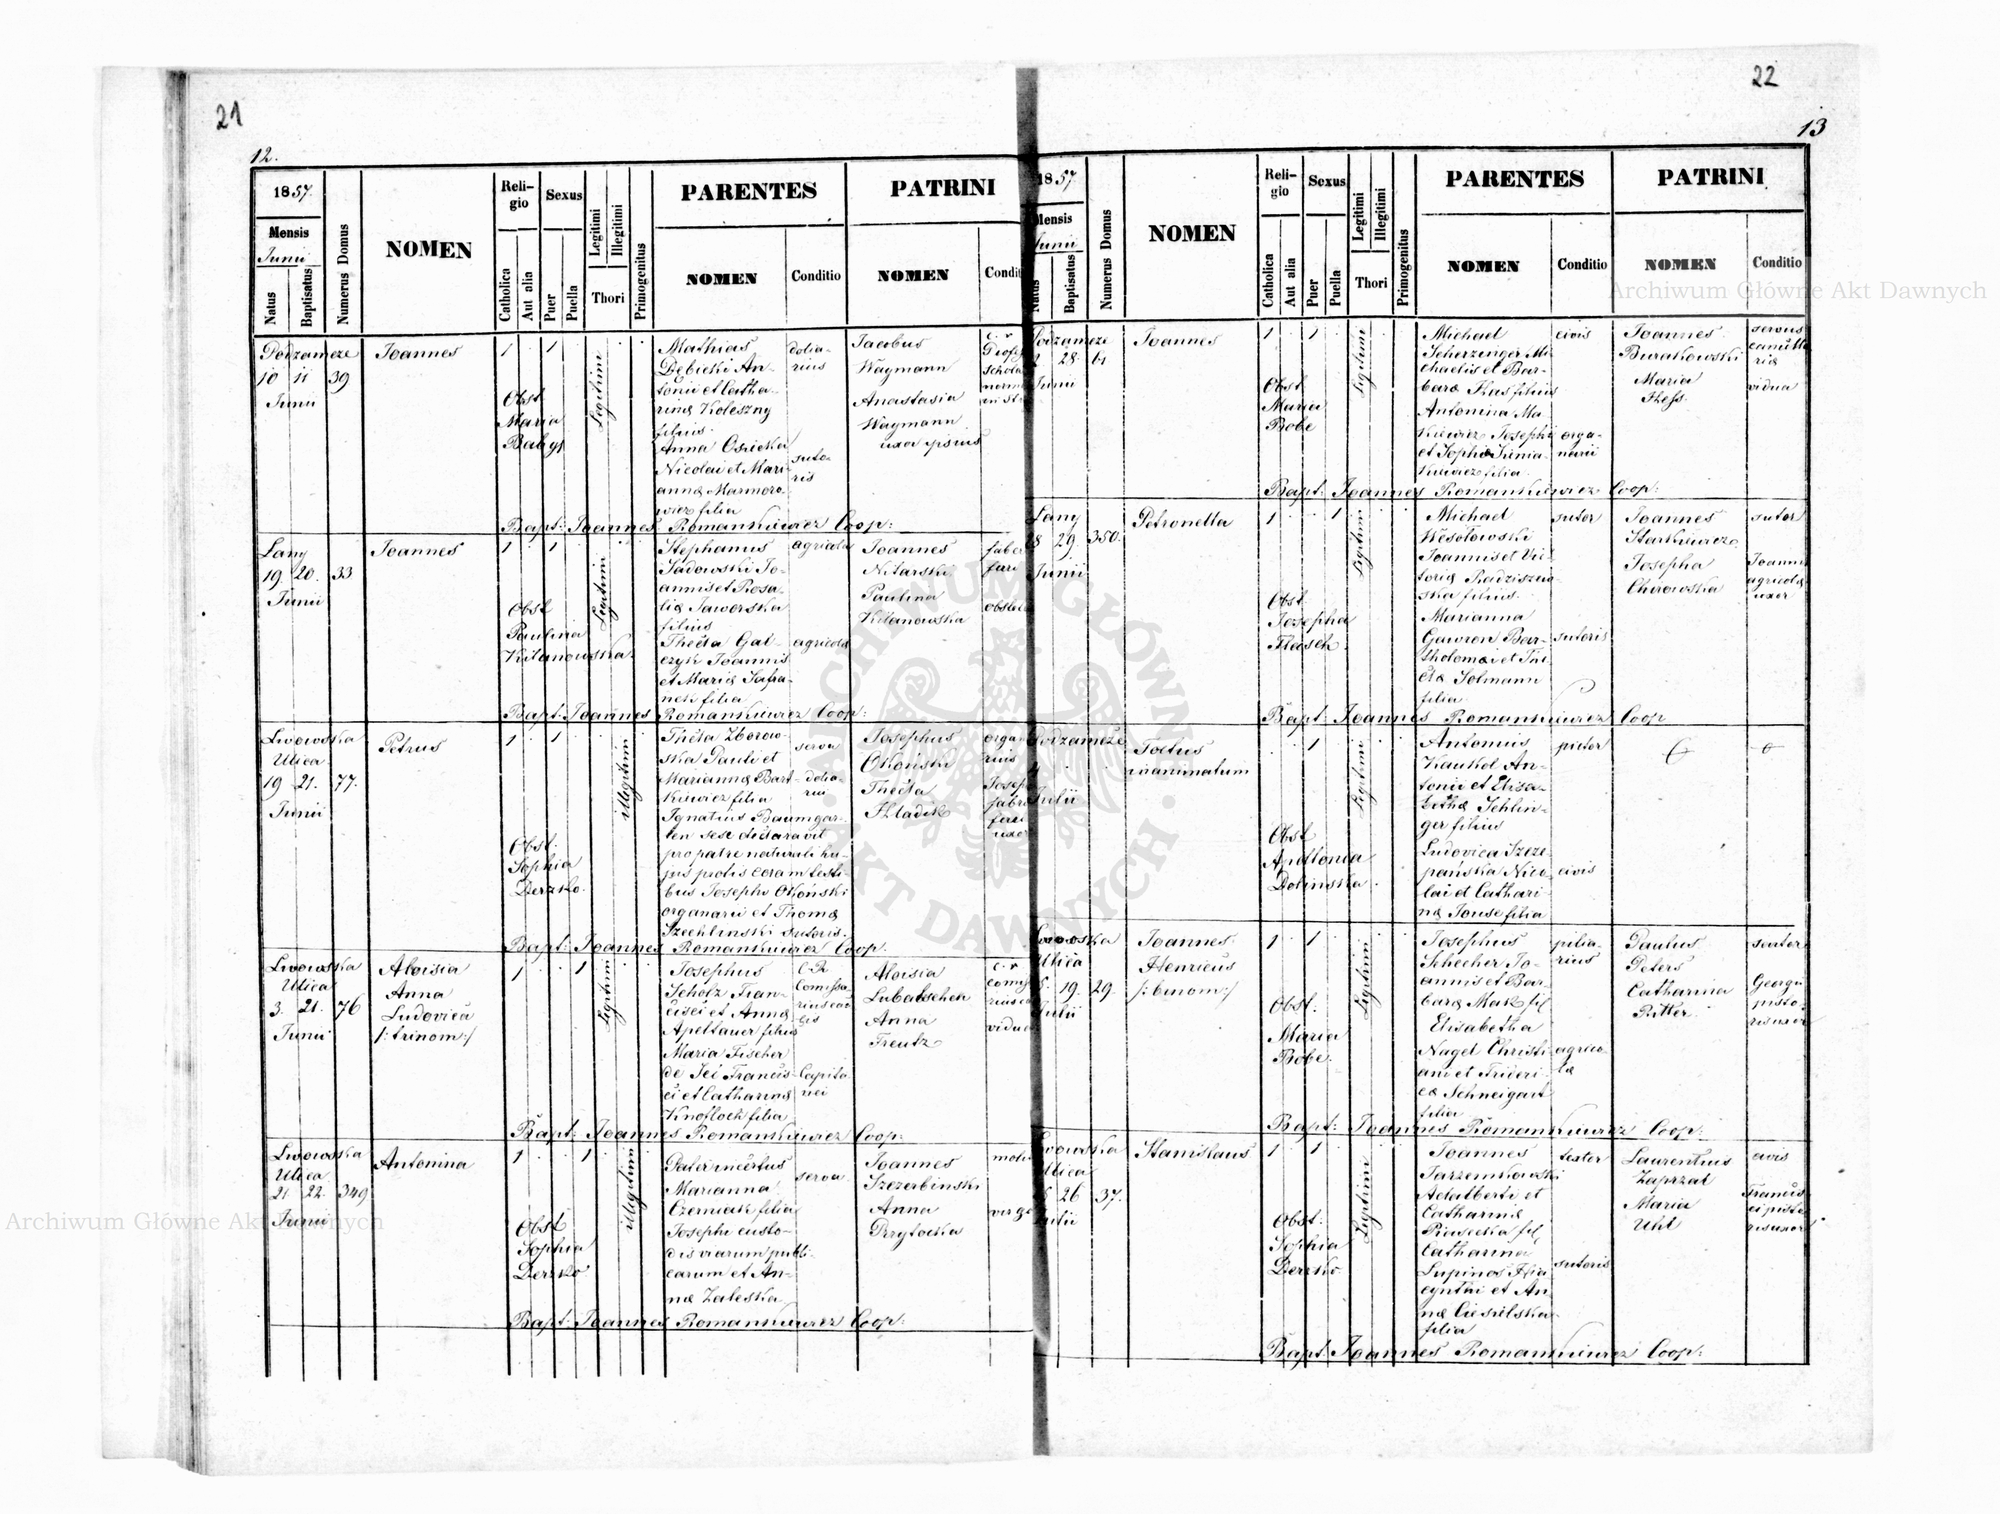 21
22
12.
13
1857.
Mensis
Junii
Natus
Baptisatus
Numerus Domus
NOMEN
Religio
Catholica
Aut alia
Sexus
Puer
Puella
Legitimi
Illegitimi
Thori
Primogenitus
PARENTES
NOMEN
Conditio
PATRINI
NOMEN
Podzamcze
10 11 39
Junii
Joannes
1 1
Obst
Maria
Legitimi
Mathias
Dębicki An-
tonii et Catha-
rinæ Koleszny
filius.
Anna Osiecka
Nicolai et Mari-
annæ Marmoro-
wicz filia
dolia-
rius
suto-
ris
Jacobus
Waymann
Anastasia
Waymann
uxor ipsius
Bapt: Joannes Romankiewicz Coop:
Łany
19. 20. 33
Junii
Joannes
1 1
Obst
Paulina
Kitanowska.
Legitimi
Stephanus
Sadowski Jo-
annis et Rosa-
liæ Jaworska
filius
Thecla Gal-
czyk Joannis
et Mariæ Safra-
nek filia
agricola
agricolæ
Joannes
Nitarski
Paulina
Kitanowska
Bapt: Joannes Romankiewicz Coop:
Lwowska
Ulica
19 21. 77.
Junii
Petrus
1 1
Obst.
Sophia
Derzko.
illegitimi
Thecla Zborow-
ska Pauli et
Mariannæ Bart-
kiewicz filia
Ignatius Baumgar-
ten sese declaravit
pro patre naturali hu-
jus prolis coram testi-
bus Josepho Okoński
organarii et Thomæ
Szechlinski sutoris.
serva
dolia-
rii
Josephus
Okoński
Thecla
Hladik
Bapt: Joannes Romankiewicz Coop.
Lwowska
Ulica
3. 21. 76
Junii
Aloisia
Anna
Ludovica
/: trinom:/
1 1
Legitimi
Josephus
Scholz Fran-
cisci et Annæ
Apeltauer filius
Maria Fischer
de Jei Francis-
ci et Catharinæ
Knoflock filia
Capita-
nei
Aloisia
Lubatschek
Anna
Treutz
vidua
Bapt: Joannes Romankiewicz Coop:
Lwowska
Ulica
21 22. 349
Junii
Antonina
1 1
Obst
Sophia
Derzko
illegitimi
Pater incertus
Marianna
Czerniak filia
Josephi custo-
dis viarum publi-
carum et An-
næ Zaleska
serva
Joannes
Szczerbinski
Anna
Przytocka
Bapt: Joannes Romankiewicz Coop:
1857
Mensis
Junii
Natus
Baptisatus
Numerus Domus
NOMEN
Religio
Catholica
Aut alia
Sexus
Puer
Puella
Legitimi
Illegitimi
Thori
Primogenitus
PARENTES
NOMEN
Conditio
PATRINI
NOMEN
Conditio
Podzamcze
28.
Junii
Joannes
1 1
Obst
Maria
Bobe
Legitimi
Michael
Scherzinger Mi-
chaelis et Bar-
baræ Has filius
Antonina Ma-
kiewicz Josephi
et Sophiæ Junia-
kiewicz filia
civis
orga-
narii
Joannes
Burakowski
Maria
Hess.
servus
vidua
Bapt: Joannes Romankiewicz Coop:
Łany
28 29. 350.
Junii
Petronella
1 1
Obst.
Josepha
Legitimi
Michael
Wesołowski
Joannis et Vic-
toriæ Radziszew-
ska filius.
Marianna
Gawron Bar-
tholomæi et The-
clæ Solmann
filia
sutor
sutoris
Joannes
Starkiewicz
Josepha
Chirowska
sutor
Joannis
agricolæ
uxor
Bapt: Joannes Romankiewicz Coop
Podzamcze
Julii
Foetus
inanimatum
1
Obst
Apollonia
Dolinska.
Legitimi
Antonius
Kaukol An-
tonii et Elisa-
bethæ Schlin-
ger filius
Ludovica Szcze-
pańska Nico-
lai et Cathari-
næ Jouse filia
pictor
civis
Lwowska
Ulica
5. 19. 29.
Julii
Joannes
Henricus
/: binom:/
1 1
Obst.
Maria
Bobe.
Legitimi
Josephus
Schecher Jo-
annis et Bar-
baræ Mak fil
Elisabetha
Nagel Christi-
ani et Frideri-
cæ Schneigart
filia
pilia-
rius
agrico-
læ
Paulus
Peters
Catharina
Ritter
sartor
Georgii
pisto-
ris uxor
Bapt: Joannes Romankiewicz Coop:
Lwowska
Ulica
26 37.
Julii
Stanislaus
1 1
Obst:
Sophia
Derzko
Legitimi
Joannes
Tarzemkowski
Adalberti et
Catharinæ
Piasecka fil
Catharina
Lupinos Hia-
cynthi et An-
næ Ciesielska
filia
textor
sutoris
Laurentius
Zaprzal
Maria
Uhl
civis
Francis-
ci pisto-
ris uxor
Bapt: Joannes Romankiewicz Coop:
Archiwum Główne Akt Dawnych
Archiwum Główne Akt Dawnych
ARCHIWUM GŁÓWNE · AKT DAWNYCH ·